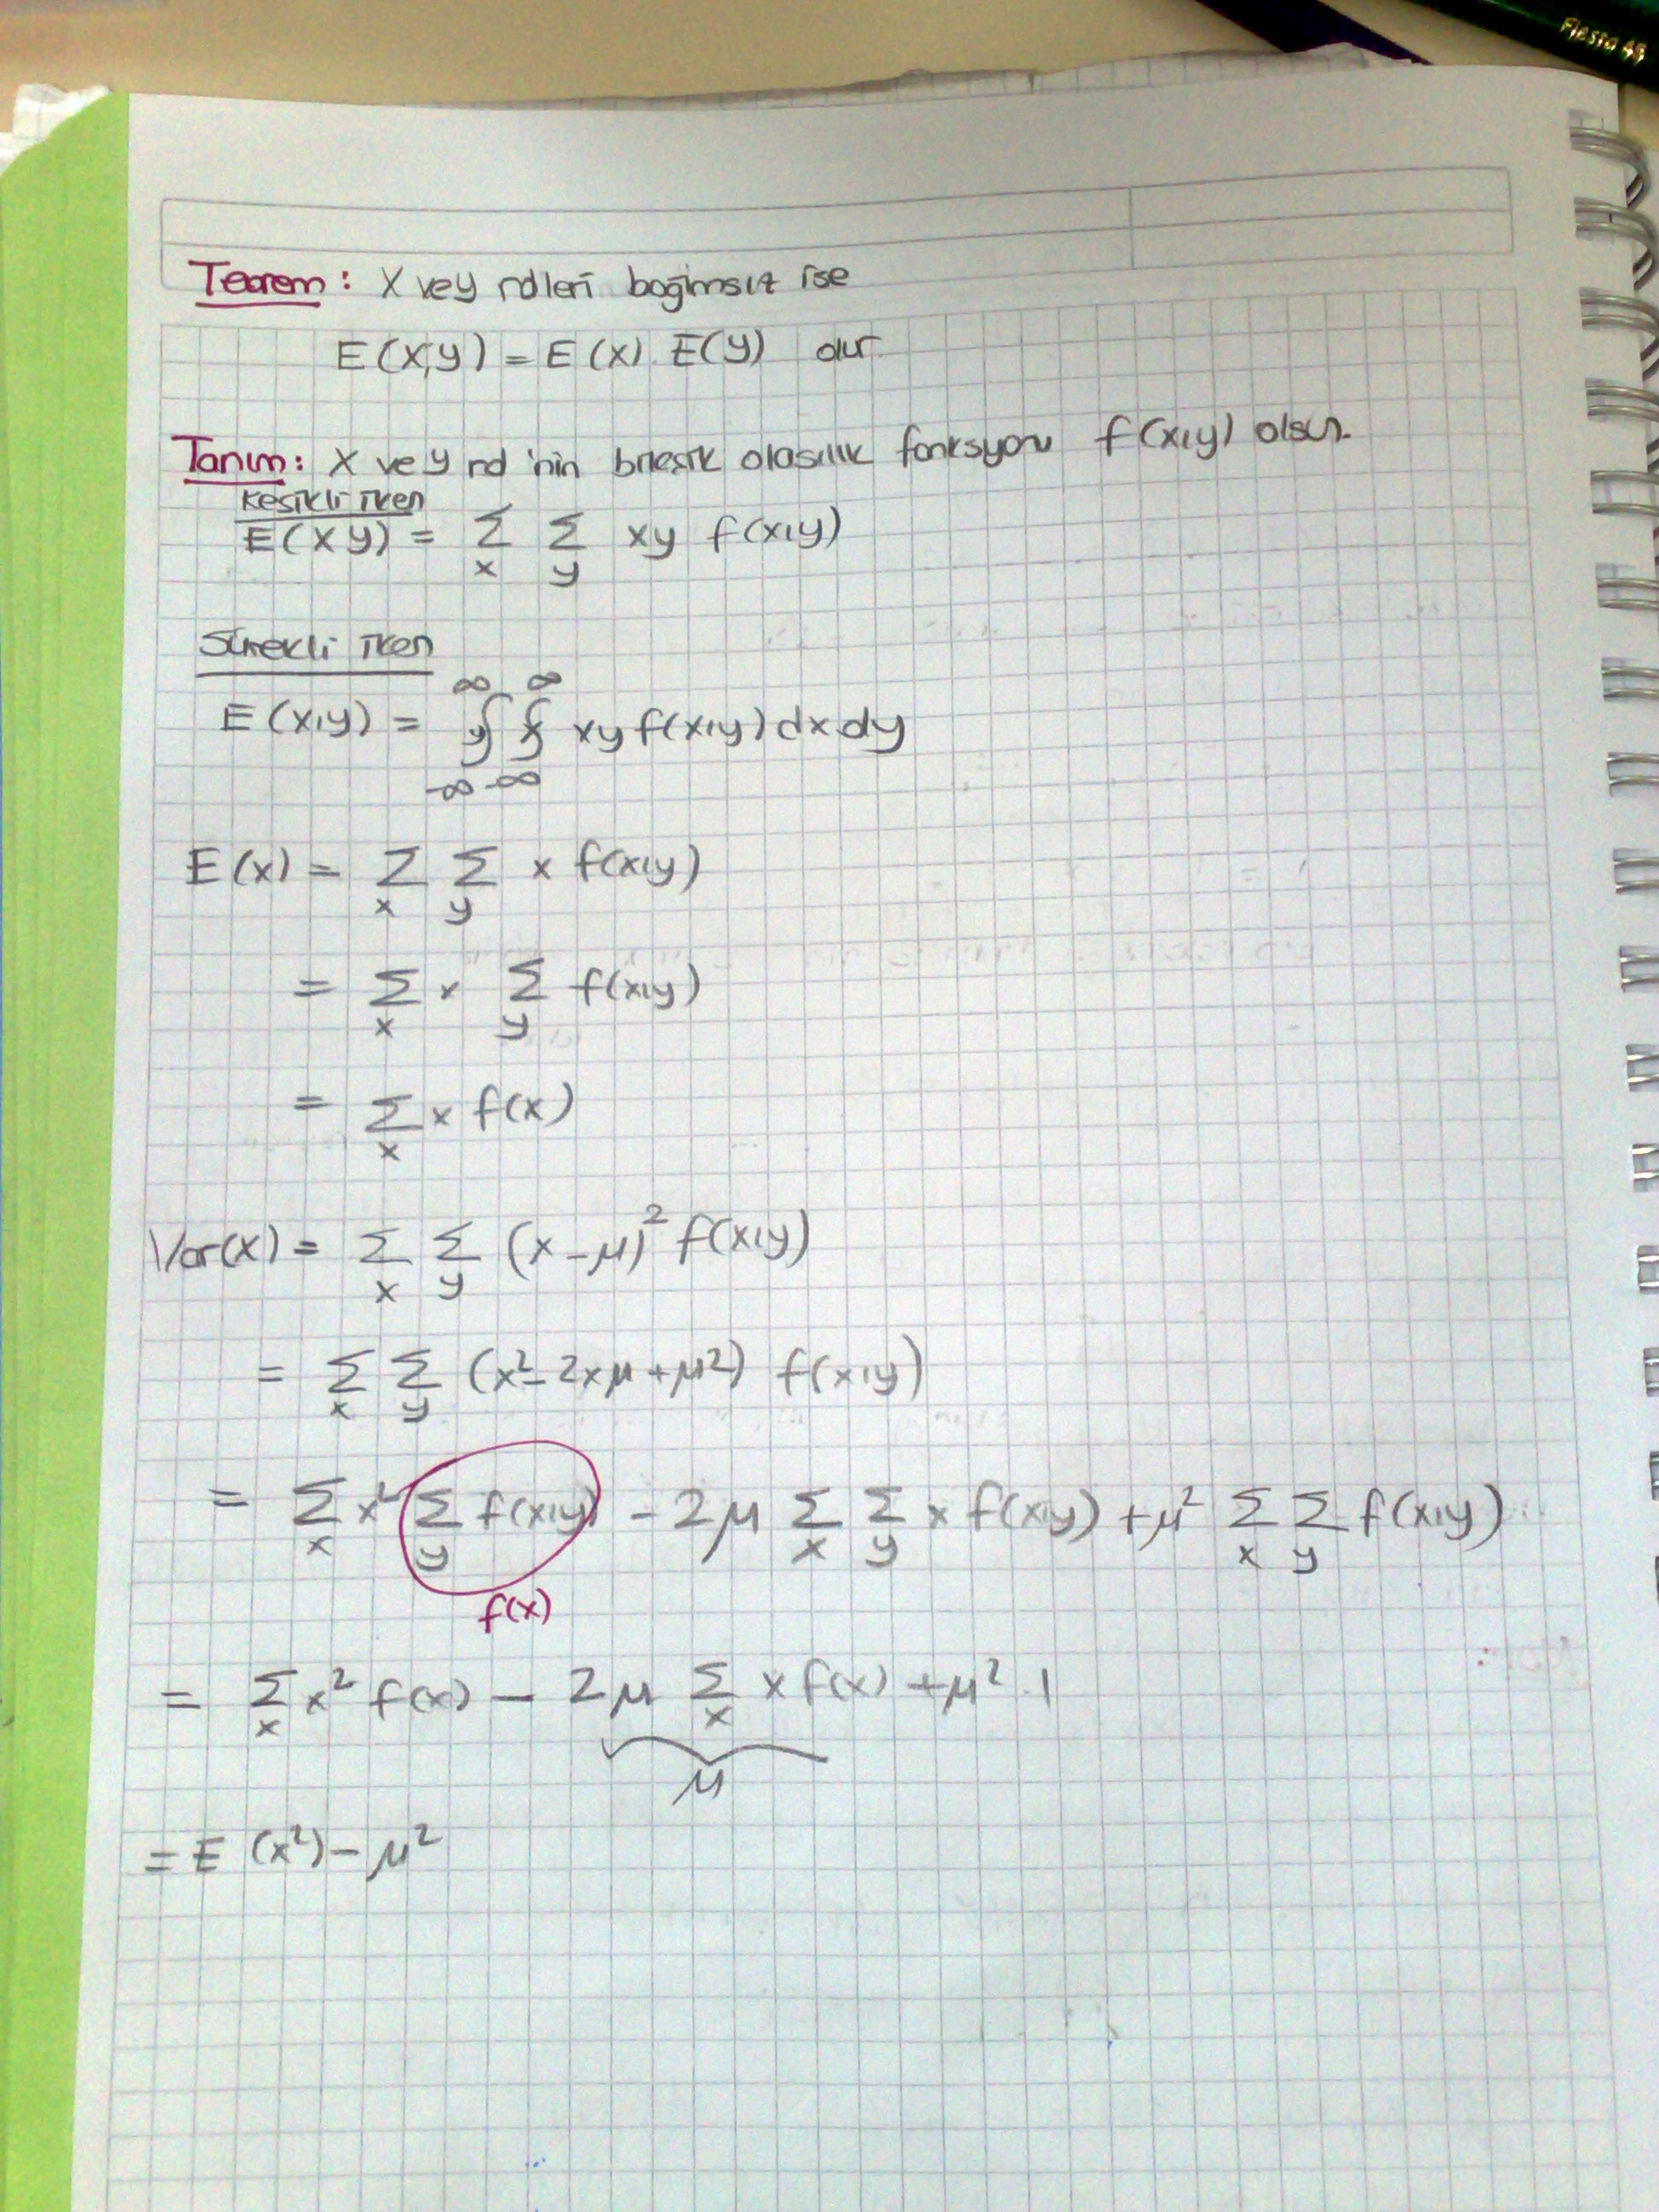 Fiesta 45
Teorem: X ve y rdleri bağımsız ise
E(X,y) = E(x). E(y) olur.
Tanım: X ve y rd'nin bileşik olasılık fonksyonu f(x,y) olsun.
Kesikli iken
E(XY) = Σ_x Σ_y xy f(x,y)
Sürekli iken
E(x,y) = ∫_{-∞}^{∞} y ∫_{-∞}^{∞} x xy f(x,y) dx dy
E(x) = Σ_x Σ_y x f(x,y)
= Σ_x x Σ_y f(x,y)
= Σ_x x f(x)
Var(x) = Σ_x Σ_y (x-μ)² f(x,y)
= Σ_x Σ_y (x²-2xμ+μ²) f(x,y)
= Σ_x x² Σ_y f(x,y) - 2μ Σ_x Σ_y x f(x,y) + μ² Σ_x Σ_y f(x,y)
f(x)
= Σ_x x² f(x) - 2μ Σ_x x f(x) + μ².1
μ
= E(x²) - μ²